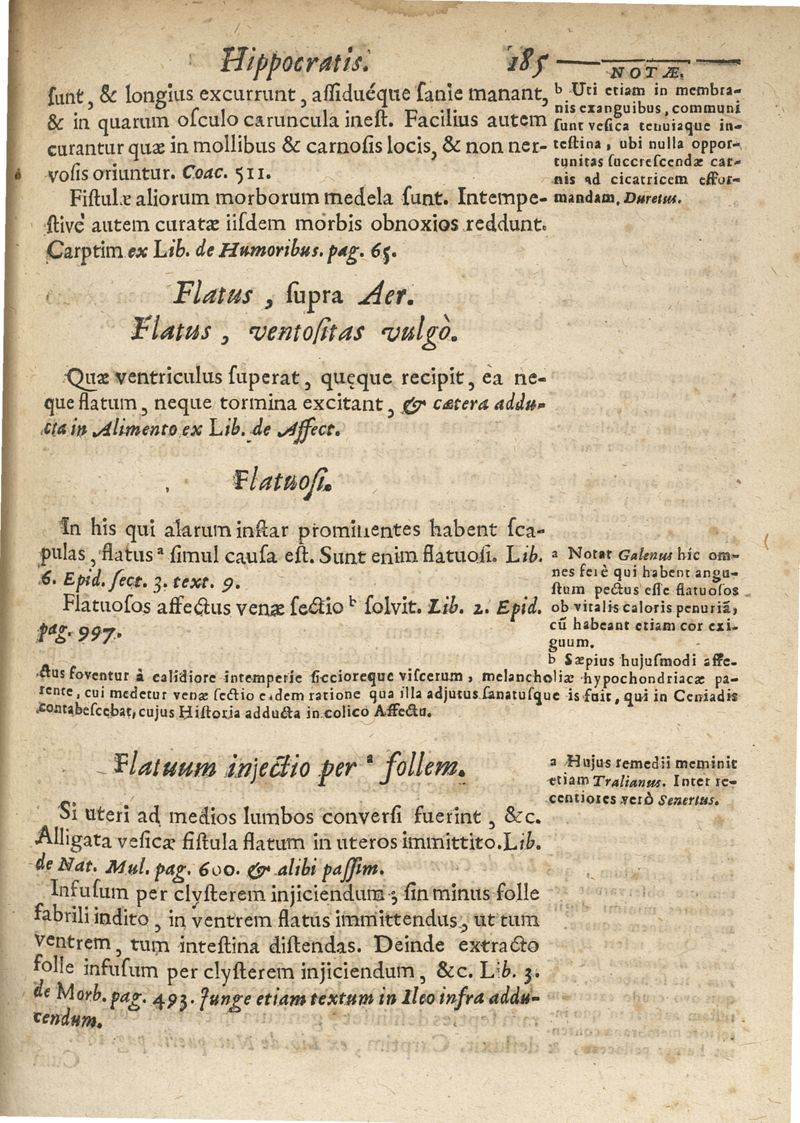 Hippocratis. 185
ſunt, & longius excurrunt, aſſiduéque ſanie manant,
& in quarum oſculo caruncula ineſt. Facilius autem
curantur quæ in mollibus & carnoſis locis, & non ner-
voſis oriuntur. Coac. 511.
Fiſtulæ aliorum morborum medela ſunt. Intempe-
ſtivè autem curatæ iiſdem morbis obnoxios reddunt.
Carptim ex Lib. de Humoribus. pag. 65.
NOTÆ.
b Uti etiam in membra-
nis exanguibus, communi
ſunt veſica tenuiaque in-
teſtina, ubi nulla oppor-
tunitas ſuccreſcendæ car-
nis ad cicatricem effor-
mandam, Duretus.
Flatus, ſupra Aer.
Flatus, ventoſitas vulgò.
Quæ ventriculus ſuperat, quęque recipit, ea ne-
que flatum, neque tormina excitant, & cætera addu-
cta in Alimento ex Lib. de Affect.
Flatuoſi.
In his qui alarum inſtar prominentes habent ſca-
pulas, flatus a ſimul cauſa eſt. Sunt enim flatuoſi. Lib.
6. Epid. ſect. 3. text. 9.
Flatuoſos affectus venæ ſectio b ſolvit. Lib. 2. Epid.
pag. 997.
a Notat Galenus hic om-
nes ferè qui habent angu-
ſtum pectus eſſe flatuoſos
ob vitalis caloris penuriã,
cũ habeant etiam cor exi-
guum.
b Sæpius hujuſmodi affe-
ctus foventur à calidiore intemperie ſiccioreque viſcerum, melancholiæ hypochondriacæ pa-
rente, cui medetur venæ ſectio eadem ratione qua illa adjutus ſanatuſque is fuit, qui in Ceniadis
contabeſcebat, cujus Hiſtoria adducta in colico Affectu.
Flatuum injectio per a follem.
Si uteri ad medios lumbos converſi fuerint, &c.
Alligata veſicæ fiſtula flatum in uteros immittito. Lib.
de Nat. Mul. pag. 600. & alibi paſſim.
Infuſum per clyſterem injiciendum; ſin minus folle
fabrili indito, in ventrem flatus immittendus, ut tum
ventrem, tum inteſtina diſtendas. Deinde extracto
folle infuſum per clyſterem injiciendum, &c. Lib. 3.
de Morb. pag. 493. Junge etiam textum in Ileo infra addu-
cendum.
a Hujus remedii meminit
etiam Tralianus. Inter re-
centiores verò Senertus.